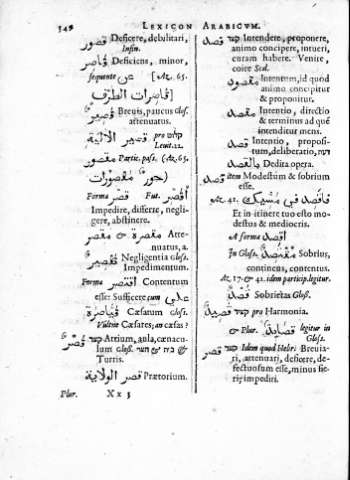 LEXICON ARABICVM.
قصور Deficere, debilitari,
Infin.
قاصر Deficiens, minor,
sequente عن [Az. 65.
قاصرات الطرف
قصير Breuis, paucus Glos.
attenuatus.
قصير الالية pro קלוט
Leuit. 22.
مقصور Partic. pass. (Az. 65.
(حور مقصورات
Forma قصّر Fut. أقصر
Impedire, differre, negli-
gere, abstinere.
مقصر مقصرة Atte-
nuatus, a.
تقصير Negligentia Glos.
Impedimentum.
Forma اقتصر Contentum
esse: Sufficere cum على
قياصرة Cæsatum Glos.
Vultne Cæsares; an cæsas?
قصر Atrium, aula, cœnacu-
lum Glos.
Turris.
قصر الولاية Prætorium.
Plur. X x 3
قصد Intendere, proponere,
animo concipere, intueri,
curam habere. Venire,
coire Scal.
مقصود Intentum, id quod
animo concipitur
& proponitur.
مقصد Intentio, directio
& terminus ad quē
intenditur mens.
قصد Intentio, proposi-
tum, deliberatio,
بالقصد Dedita opera.
قصد item Modestum & sobrium
esse.
Az. 42. فاقصد في مشيك
Et in itinere tuo esto mo-
destus & mediocris.
A forma اقتصد
In Glos. مقتصد Sobrius,
continens, contentus.
Az. 17. & 42. idem particip. legitur.
قصد Sobrietas Glos.
قصيدة pro Harmonia.
Plur. قصايد legitur in
Glos.
قصر Idem quod Hebr: Breuia-
ri, attenuari, deficere, de-
fectuosum esse, minus fie-
ri; impediri.